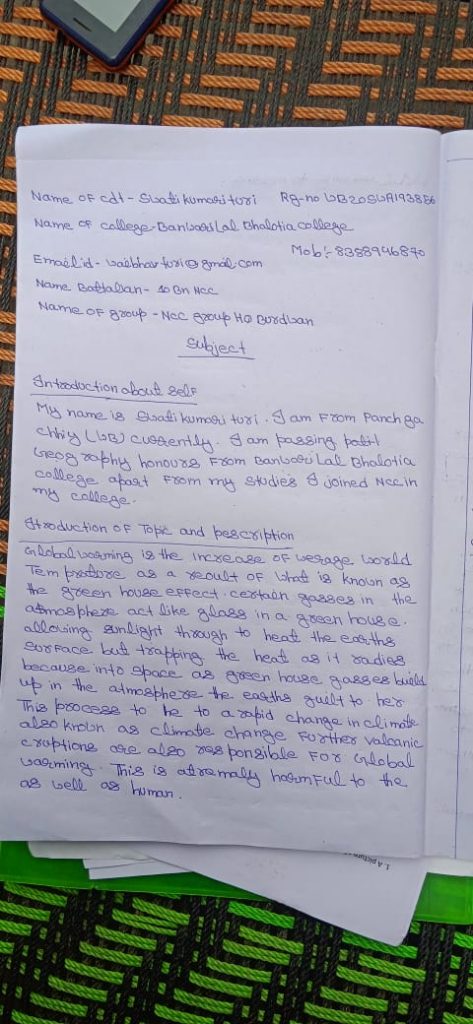 Name OF cdt - Swati kumari turi Rg-no WB20SWA193886
Name OF college - Banwari Lal Bhalotia college
Mob:- 8358946870
Email id - vaibhav turi@gmail.com
Name Battalian - 10 Bn NCC
Name OF group - Ncc group HQ Burdwan
Subject
Introduction about self
My name is Swati kumari turi. I am From Panchga
chhiy (WB) currently. I am passing
Geography honours From Banwari Lal Bhalotia
college apart From my studies I joined Ncc in
my college.
Itroduction OF Topic and Description
Global warming is the increase OF verage world
Temprature as a result OF what is known as
the green house effect. certain gasses in the
atmosphere act like glass in a green house.
allowing sunlight through to heat the earths
surface but trapping the heat as it radies
because into space as green house gasses build
up in the atmosphere the earths guilt to her
This process to he to a rapid change in climate
also known as climate change Further valcanic
cruptions are also responsible FOR Global
warming. This is atremaly harmful to the
as well as human.
1. A picture